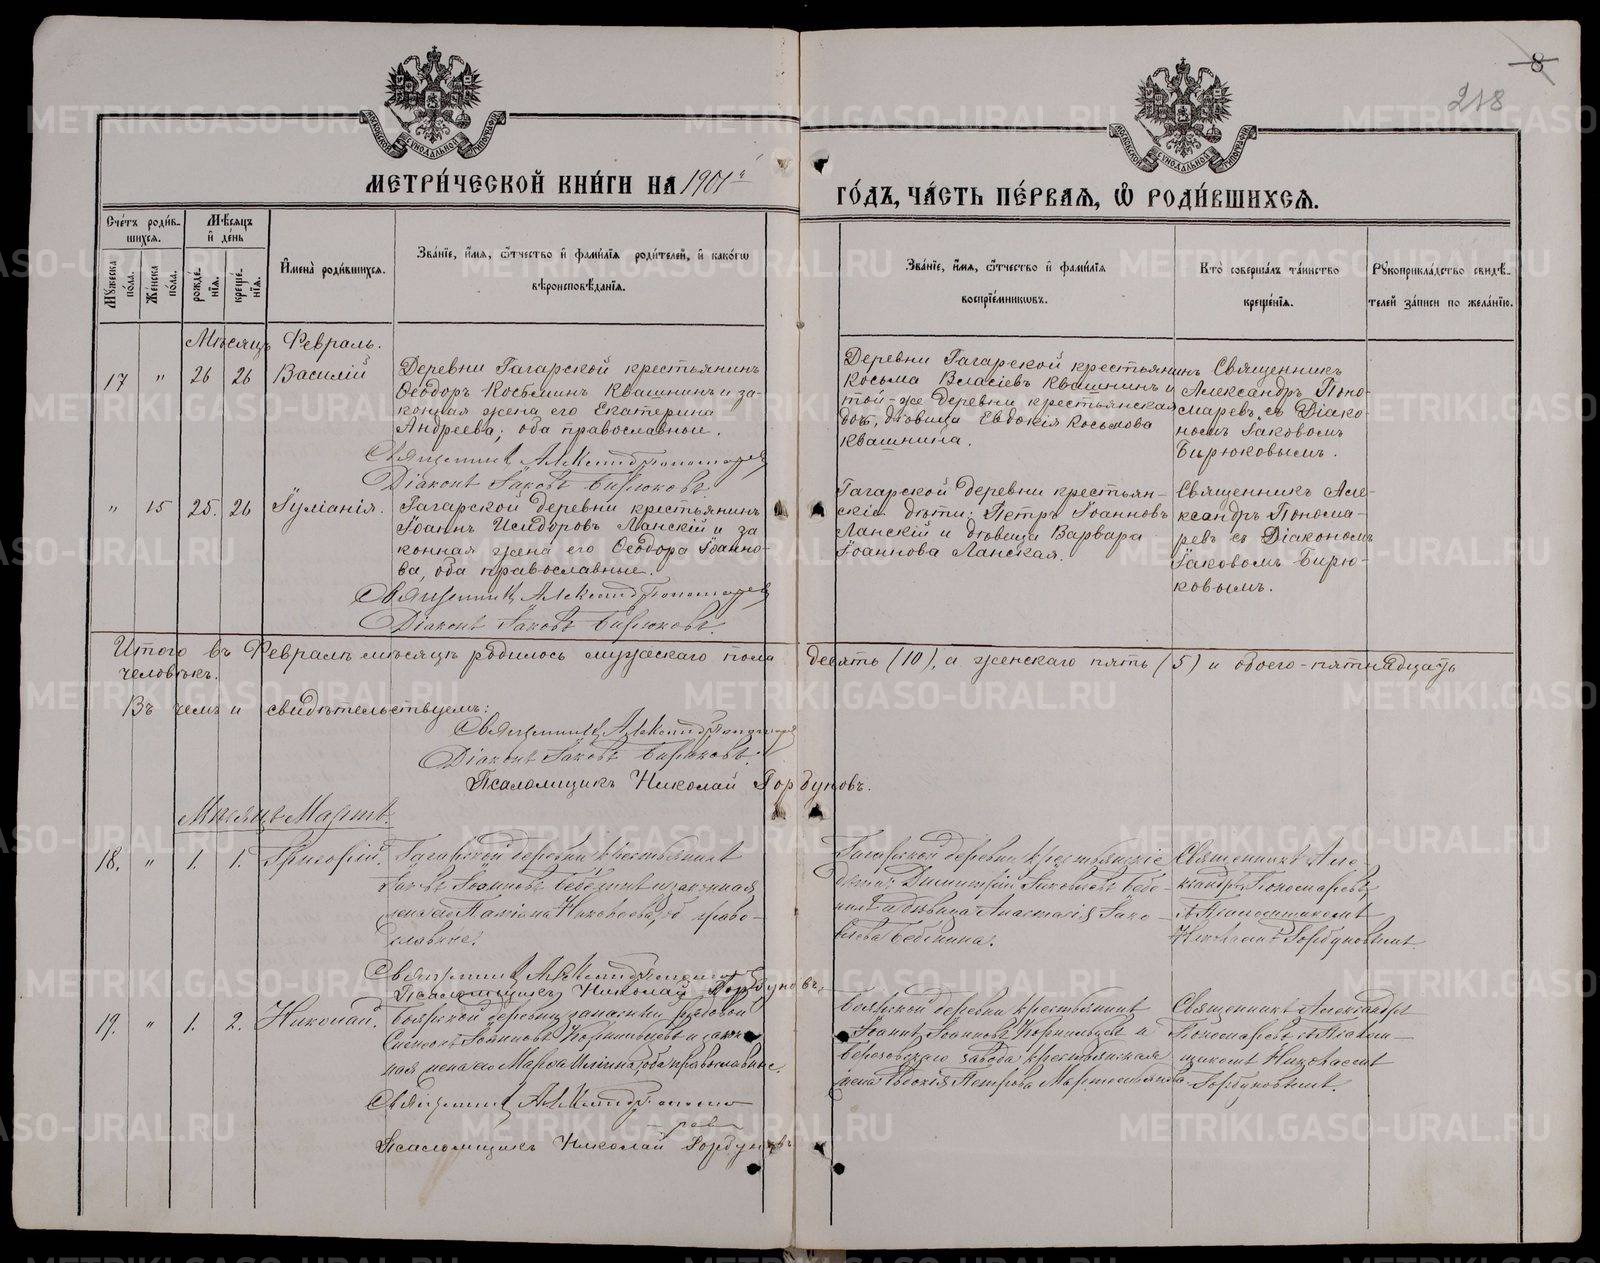 8
218
МЕТРИ́ЧЕСКОЙ КНИ́ГИ НА 1901й
ГО́ДЪ, ЧА́СТЬ ПЕ́РВАЯ, Ѡ҆ РОДИ́ВШИХСЯ.
Сче́тъ роди́в-
шихся.
Мꙋжеска по́ла.
Же́нска по́ла.
Мѣ́сяцъ
и҆ де́нь
рожде́нїя.
креще́нїя.
И҆мена̀ роди́вшихся.
Зва́нїе, и҆́мя, ѻ҆́тчество и҆ фами́лїя роди́телей, и҆ како́гѡ
вѣроисповѣ́данїя.
Зва́нїе, и҆́мя, ѻ҆́тчество и҆ фами́лїя
воспрїе́мникѡвъ.
Кто̀ соверша́лъ та́инство
креще́нїя.
Рꙋкоприкла́дство свидѣ́-
телей за́писи по жела́нїю.
Мѣсяцъ Февраль.
17 " 26 26 Василій
Деревни Гагарской крестьянинъ
Ѳеодоръ Косьминъ Квашнинъ и за-
конная жена его Екатерина
Андреева; оба православные.
Священникъ Александръ Пономаревъ
Діаконъ Іаковъ Бирюковъ.
Деревни Гагарской крестьянинъ
Косьма Власіевъ Квашнинъ и
той-же деревни, крестьянская
дочь, дѣвица Евдокія Косьмова
Квашнина.
Священникъ
Александръ Поно-
маревъ съ Діако-
номъ Іаковомъ
Бирюковымъ.
" 15 25. 26 Іуліанія.
Гагарской деревни крестьянинъ
Іоаннъ Исидоровъ Ланскій и за
конная жена его Ѳеодора Іоанно-
ва, оба православные.
Священникъ Александръ Пономаревъ
Діаконъ Іаковъ Бирюковъ.
Гагарской деревни крестьян-
скіе дѣти: Петръ Іоанновъ
Ланскій и дѣвица Варвара
Іоаннова Ланская.
Священникъ Але-
ксандръ Понома-
ревъ съ Діакономъ
Іаковомъ Бирю-
ковымъ.
Итого въ Февралѣ мѣсяцѣ родилось мужескаго пола десять (10), а женскаго пять (5) и обоего-пятнадцать
человѣкъ.
Въ чемъ и свидѣтельствуемъ:
Священникъ Александръ Пономаревъ
Діаконъ Іаковъ Бирюковъ.
Псаломщикъ Николай Гордуновъ.
Мѣсяцъ Мартъ.
18. " 1. 1. Григорій.
Гагарской деревни крестьянинъ
Іаковъ Іоанновъ Бебенинъ и законная
жена его Николаева, оба право-
славные.
Священникъ Александръ Пономаревъ
Псаломщикъ Николай Гордуновъ.
Гагарской деревни крестьянскіе
дѣти: Димитрій Іаковлевъ Бебе-
нинъ и дѣвица Анастасія Іако-
влева Бебенина.
Священникъ Але-
ксандръ Пономаревъ
съ Псаломщикомъ
Николаемъ Гордуновымъ.
19. " 1. 2. Николай.
Боярской деревни запасный рядовой
Симеонъ Іоанновъ Корнильцевъ и закон-
ная жена его Марѳа Ильина, оба православные.
Священникъ Александръ Пономо-
ревъ
Псаломщикъ Николай Гордуновъ
Боярской деревни крестьянинъ
Іоаннъ Іоанновъ Корнильцевъ и
Березовскаго завода крестьянская
жена Евдокія Петрова Мартемьянова
Священникъ Александръ
Пономаревъ съ Псалом-
щикомъ Николаемъ
Гордуновымъ.
METRIKI.GASO-URAL.RU